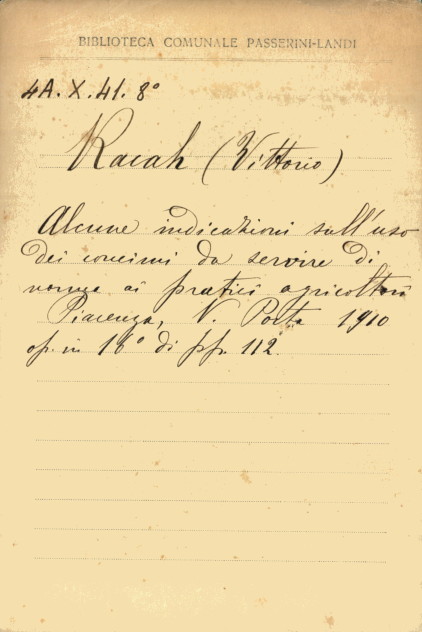 BIBLIOTECA COMUNALE PASSERINI-LANDI
4A. X. 41. 8°
Racah (Vittorio)
Alcune indicazioni sull'uso
dei concimi da servire di
norma ai pratici agricoltori
Piacenza, V. Porta 1910
op. in 18° di pp. 112.